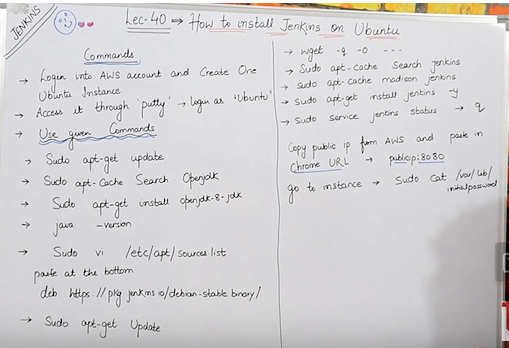 JENKINS
Lec-40 ⇒ How to install Jenkins on Ubuntu
Commands
→ Login into AWS account and Create One
Ubuntu Instance
→ Access it through 'putty' → login as 'Ubuntu'
→ Use given Commands
→ Sudo apt-get update
→ Sudo apt-Cache Search Openjdk
→ Sudo apt-get install openjdk-8-jdk
→ java -version
→ Sudo vi /etc/apt/sources list
paste at the bottom
deb https://pkg jenkins.io/debian-stable binary/
→ Sudo apt-get Update
→ wget -q -O - - -
→ Sudo apt-cache Search jenkins
→ sudo apt-cache madison jenkins
→ sudo apt-get install jenkins -y
→ sudo service jenkins status → q
Copy public ip from AWS and paste in
Chrome URL → publicip:8080
go to instance → Sudo cat /var/lib/
initialpassword